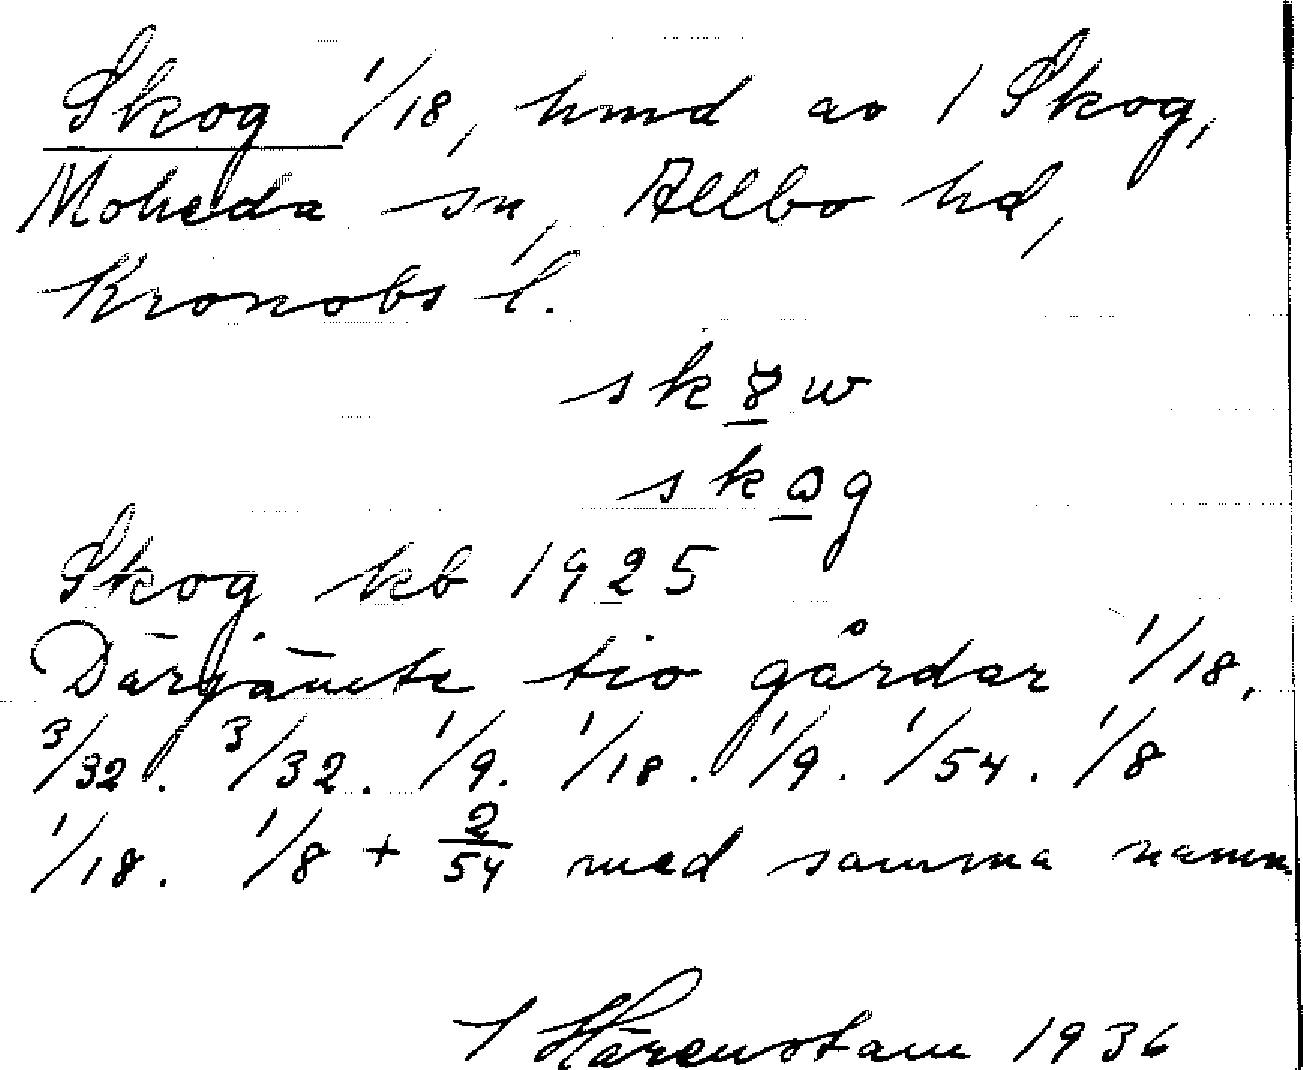 Skog 1/18, hmd av 1 Skog,
Moheda sn, Allbo hd,
Kronobs l.
sk w
skɷg
Skog kb 1925
Därjämte tio gårdar 1/18,
3/32. 3/32. 1/9. 1/18. 1/9. 1/54. 1/8
1/18. 1/8 + 2/54 med samma namn
Härenstam 1936